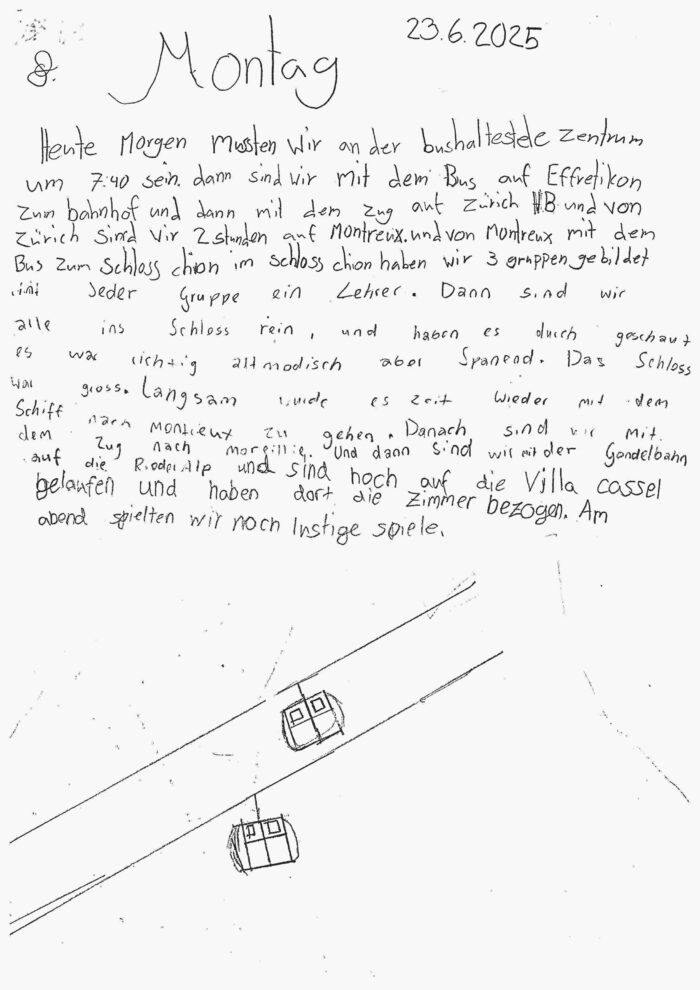 23.6.2025
Montag
Heute Morgen mussten wir an der bushaltestelle Zentrum
um 7:40 sein. dann sind wir mit dem Bus auf Effretikon
zum bahnhof und dann mit dem zug auf Zürich HB und von
Zürich sind wir 2 stunden auf Montreux. und von Montreux mit dem
Bus zum Schloss chion im schloss chion haben wir 3 gruppen gebildet
mit Jeder Gruppe ein Lehrer. Dann sind wir
alle ins Schloss rein, und haben es durch geschaut
es war richtig altmodisch aber Spanend. Das Schloss
war gross. Langsam wurde es zeit wieder mit dem
Schiff nach montreux zu gehen. Danach sind wir mit
dem Zug nach und dann sind wir mit der Gondelbahn
auf die RiederAlp und sind hoch auf die Villa cassel
gelaufen und haben dort die zimmer bezogen. Am
abend spielten wir noch lustige spiele.